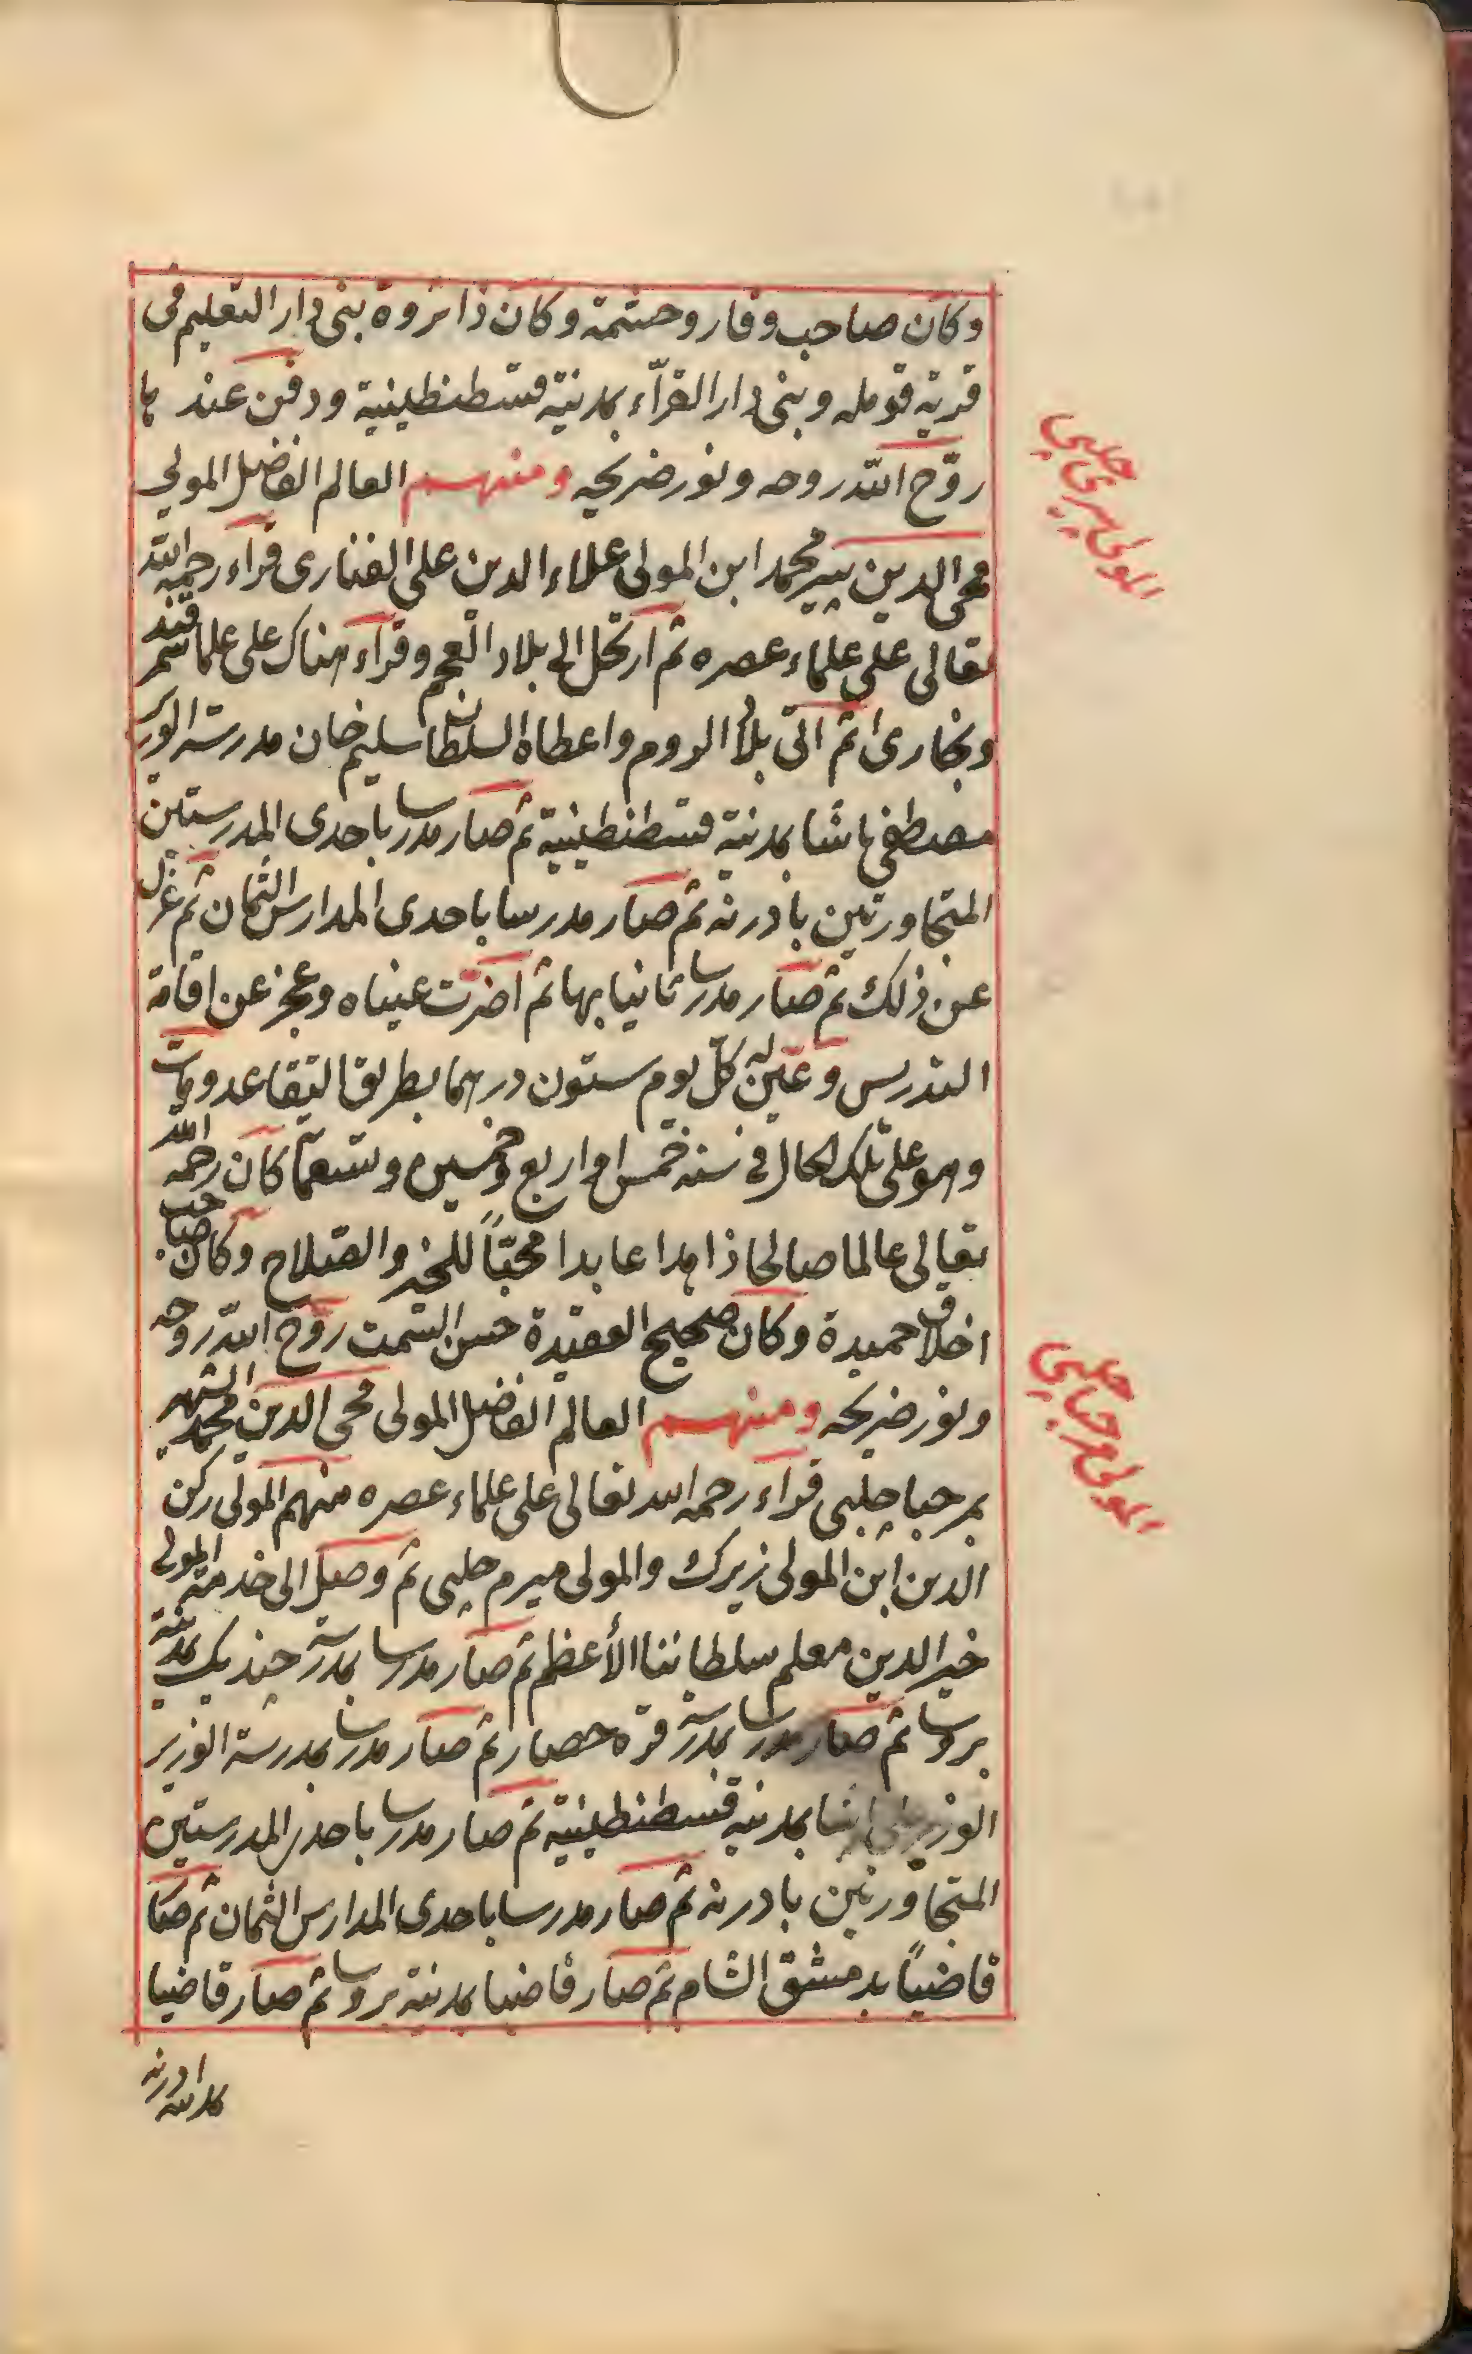 وكان صاحب وقار وحشمة وكان ذا ثروة بنى دار التعليم في
قرية قومله وبنى دار القرّاء بمدينة قسطنطينية ودفن عندها
روّح الله روحه ونور ضريحه ومنهم العالم الفاضل المولى
محي الدين پير محمد ابن المولى علاء الدين على الفنارى قراء رحمه الله
تعالى على علماء عصره ثم ارتحل الى بلاد العجم وقراء هناك على علما سمرقند
وبخارى ثم اتى بلاد الروم واعطاه السلطان سليم خان مدرسة الوزير
مصطفى پاشا بمدينة قسطنطينية ثم صار مدرسا باحدى المدرستين
المتجاورتين بادرنه ثم صار مدرسا باحدى المدارس الثمان ثم عزل
عن ذلك ثم صار مدرسا ثانيا بها ثم اضرّت عيناه وعجز عن اقامة
التدريس وعيّن له كلّ يوم ستون درهما بطريق التقاعد ومات
وهو على تلك الحال في سنه خمس او اربع وخمسين وتسعمائة كان رحمه الله
تعالى عالما صالحا زاهدا عابدا محبّاً للخير والصّلاح وكان صاحب
اخلاق حميدة وكان صحيح العقيدة حسن السّمت روّح الله روحه
ونور ضريحه ومنهم العالم الفاضل المولى محي الدين محمد الشهير
بمرحبا چلبى قراء رحمه الله تعالى على علماء عصره منهم المولى ركن
الدين ابن المولى زيرك والمولى ميرم چلبى ثم وصل الى خدمة المولى
خير الدين معلم سلطاننا الأعظم ثم صار مدرسا بمدرسة جنديك بمدينة
بروسا ثم صار مدرسا بمدرسة قره حصار ثم صار مدرسا بمدرسة الوزير
الوزير پاشا بمدينه قسطنطينية ثم صار مدرسا باحدى المدرستين
المتجاورتين بادرنه ثم صار مدرسا باحدى المدارس الثمان ثم صار
قاضياً بدمشق الشام ثم صار قاضيا بمدينة بروسا ثم صار قاضيا
المولى پيرى چلبى
المولى مرحبا چلبى
بمدينة ادرنه